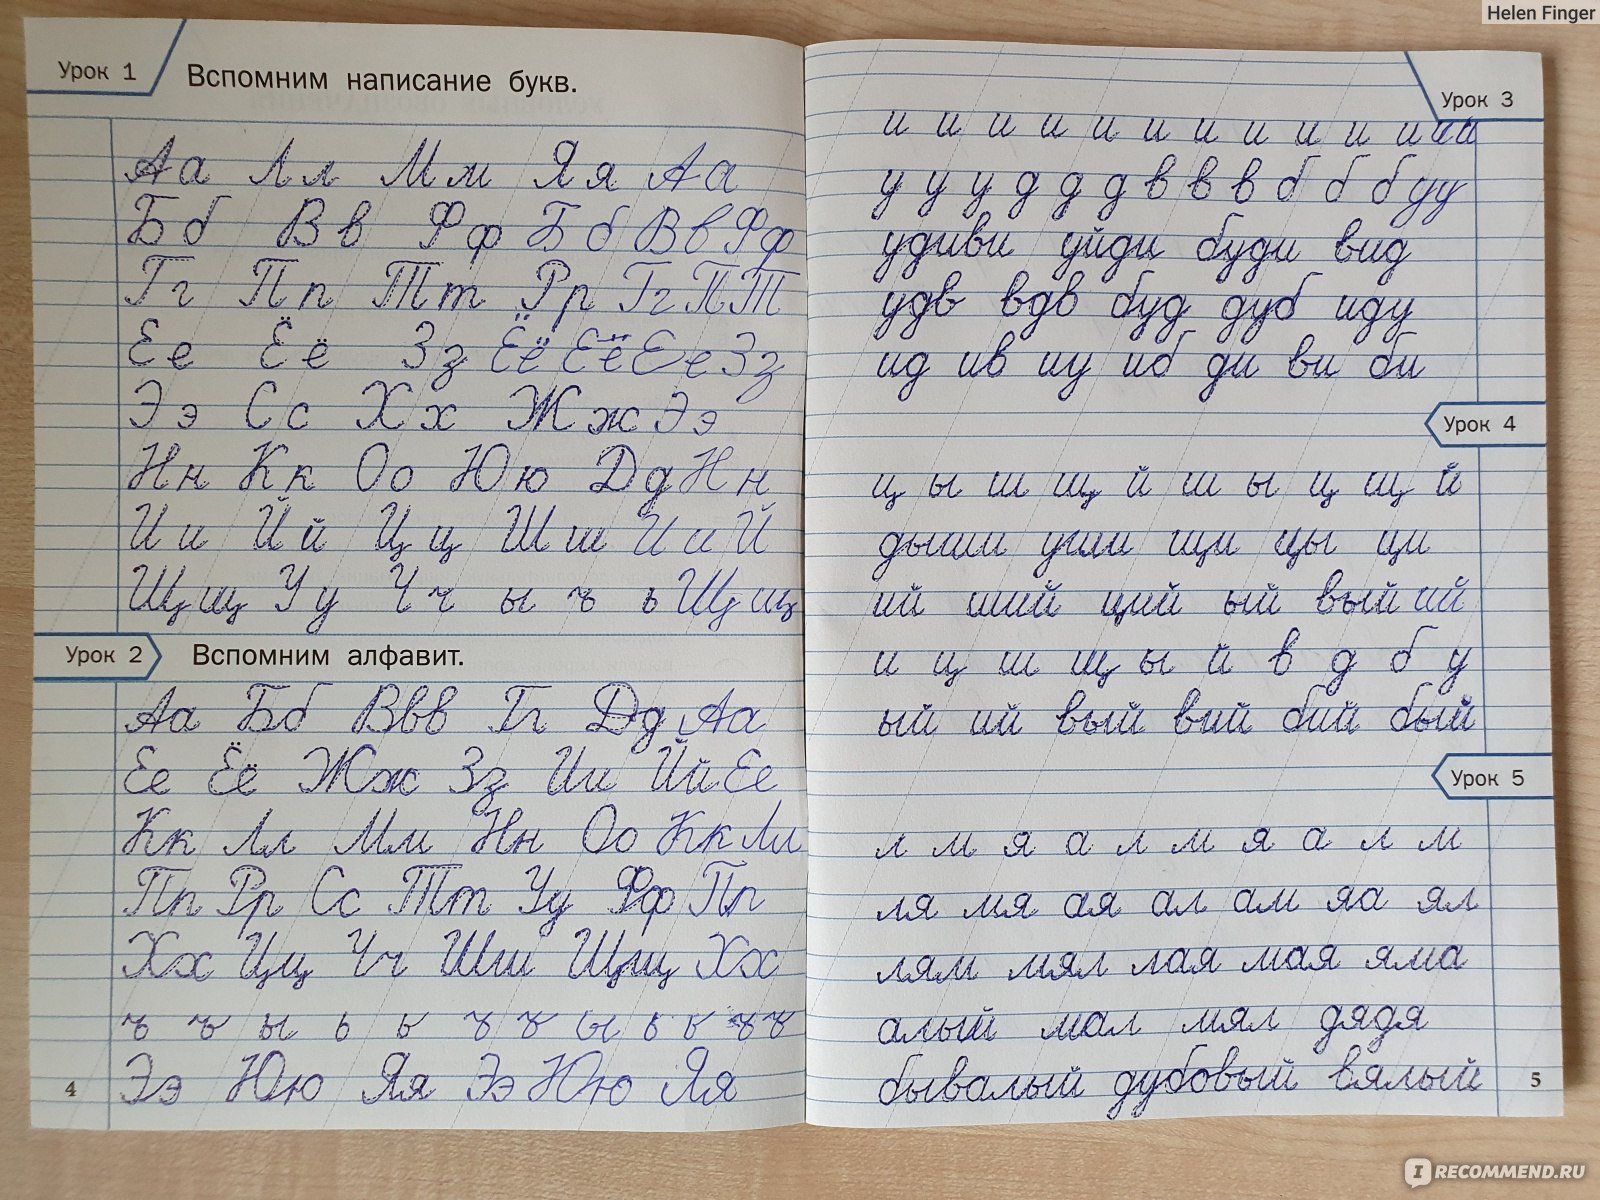 Helen Finger
Урок 1
Вспомним написание букв.
Аа Лл Мм Яя Аа
Бб Вв Фф Бб Вв Фф
Гг Пп Тт Рр Гг П Т
Ее Ёё Зз Ёё Её Ее Зз
Ээ Сс Хх Жж Ээ
Нн Кк Оо Юю Дд Нн
Ии Йй Цц Шш Ии Й
Щщ Уу Чч ы ъ ь Щщ
Урок 2
Вспомним алфавит.
Аа Бб Ввв Гг Дд Аа
Ее Ёё Жж Зз Ии Йй Ее
Кк Лл Мм Нн Оо Кк Лл
Пп Рр Сс Тт Уу Фф Пп
Хх Цц Чч Шш Щщ Хх
ъ ъ ы ь ь ъ ъ ы ь ь ъ ъ
Ээ Юю Яя Ээ Юю Яя
4
Урок 3
и и и и и и и и и и и и и
у у у д д д в в в б б б у у
удиви уйди буди вид
удв вдв буд дуб иду
ид ив иу иб ди ви би
Урок 4
ц ы ш щ й ш ы ц щ й
дыши ушли щи цы ци
ий ший ций ый вый ий
и ц ш щ ы й в д б у
ый ий вый вий бий бый
Урок 5
л м я а л м я а л м
ля мя ая ал ам яа ял
лям мял лая мая яма
алый мал мял дядя
бывалый дубовый вялый
5
IRECOMMEND.RU